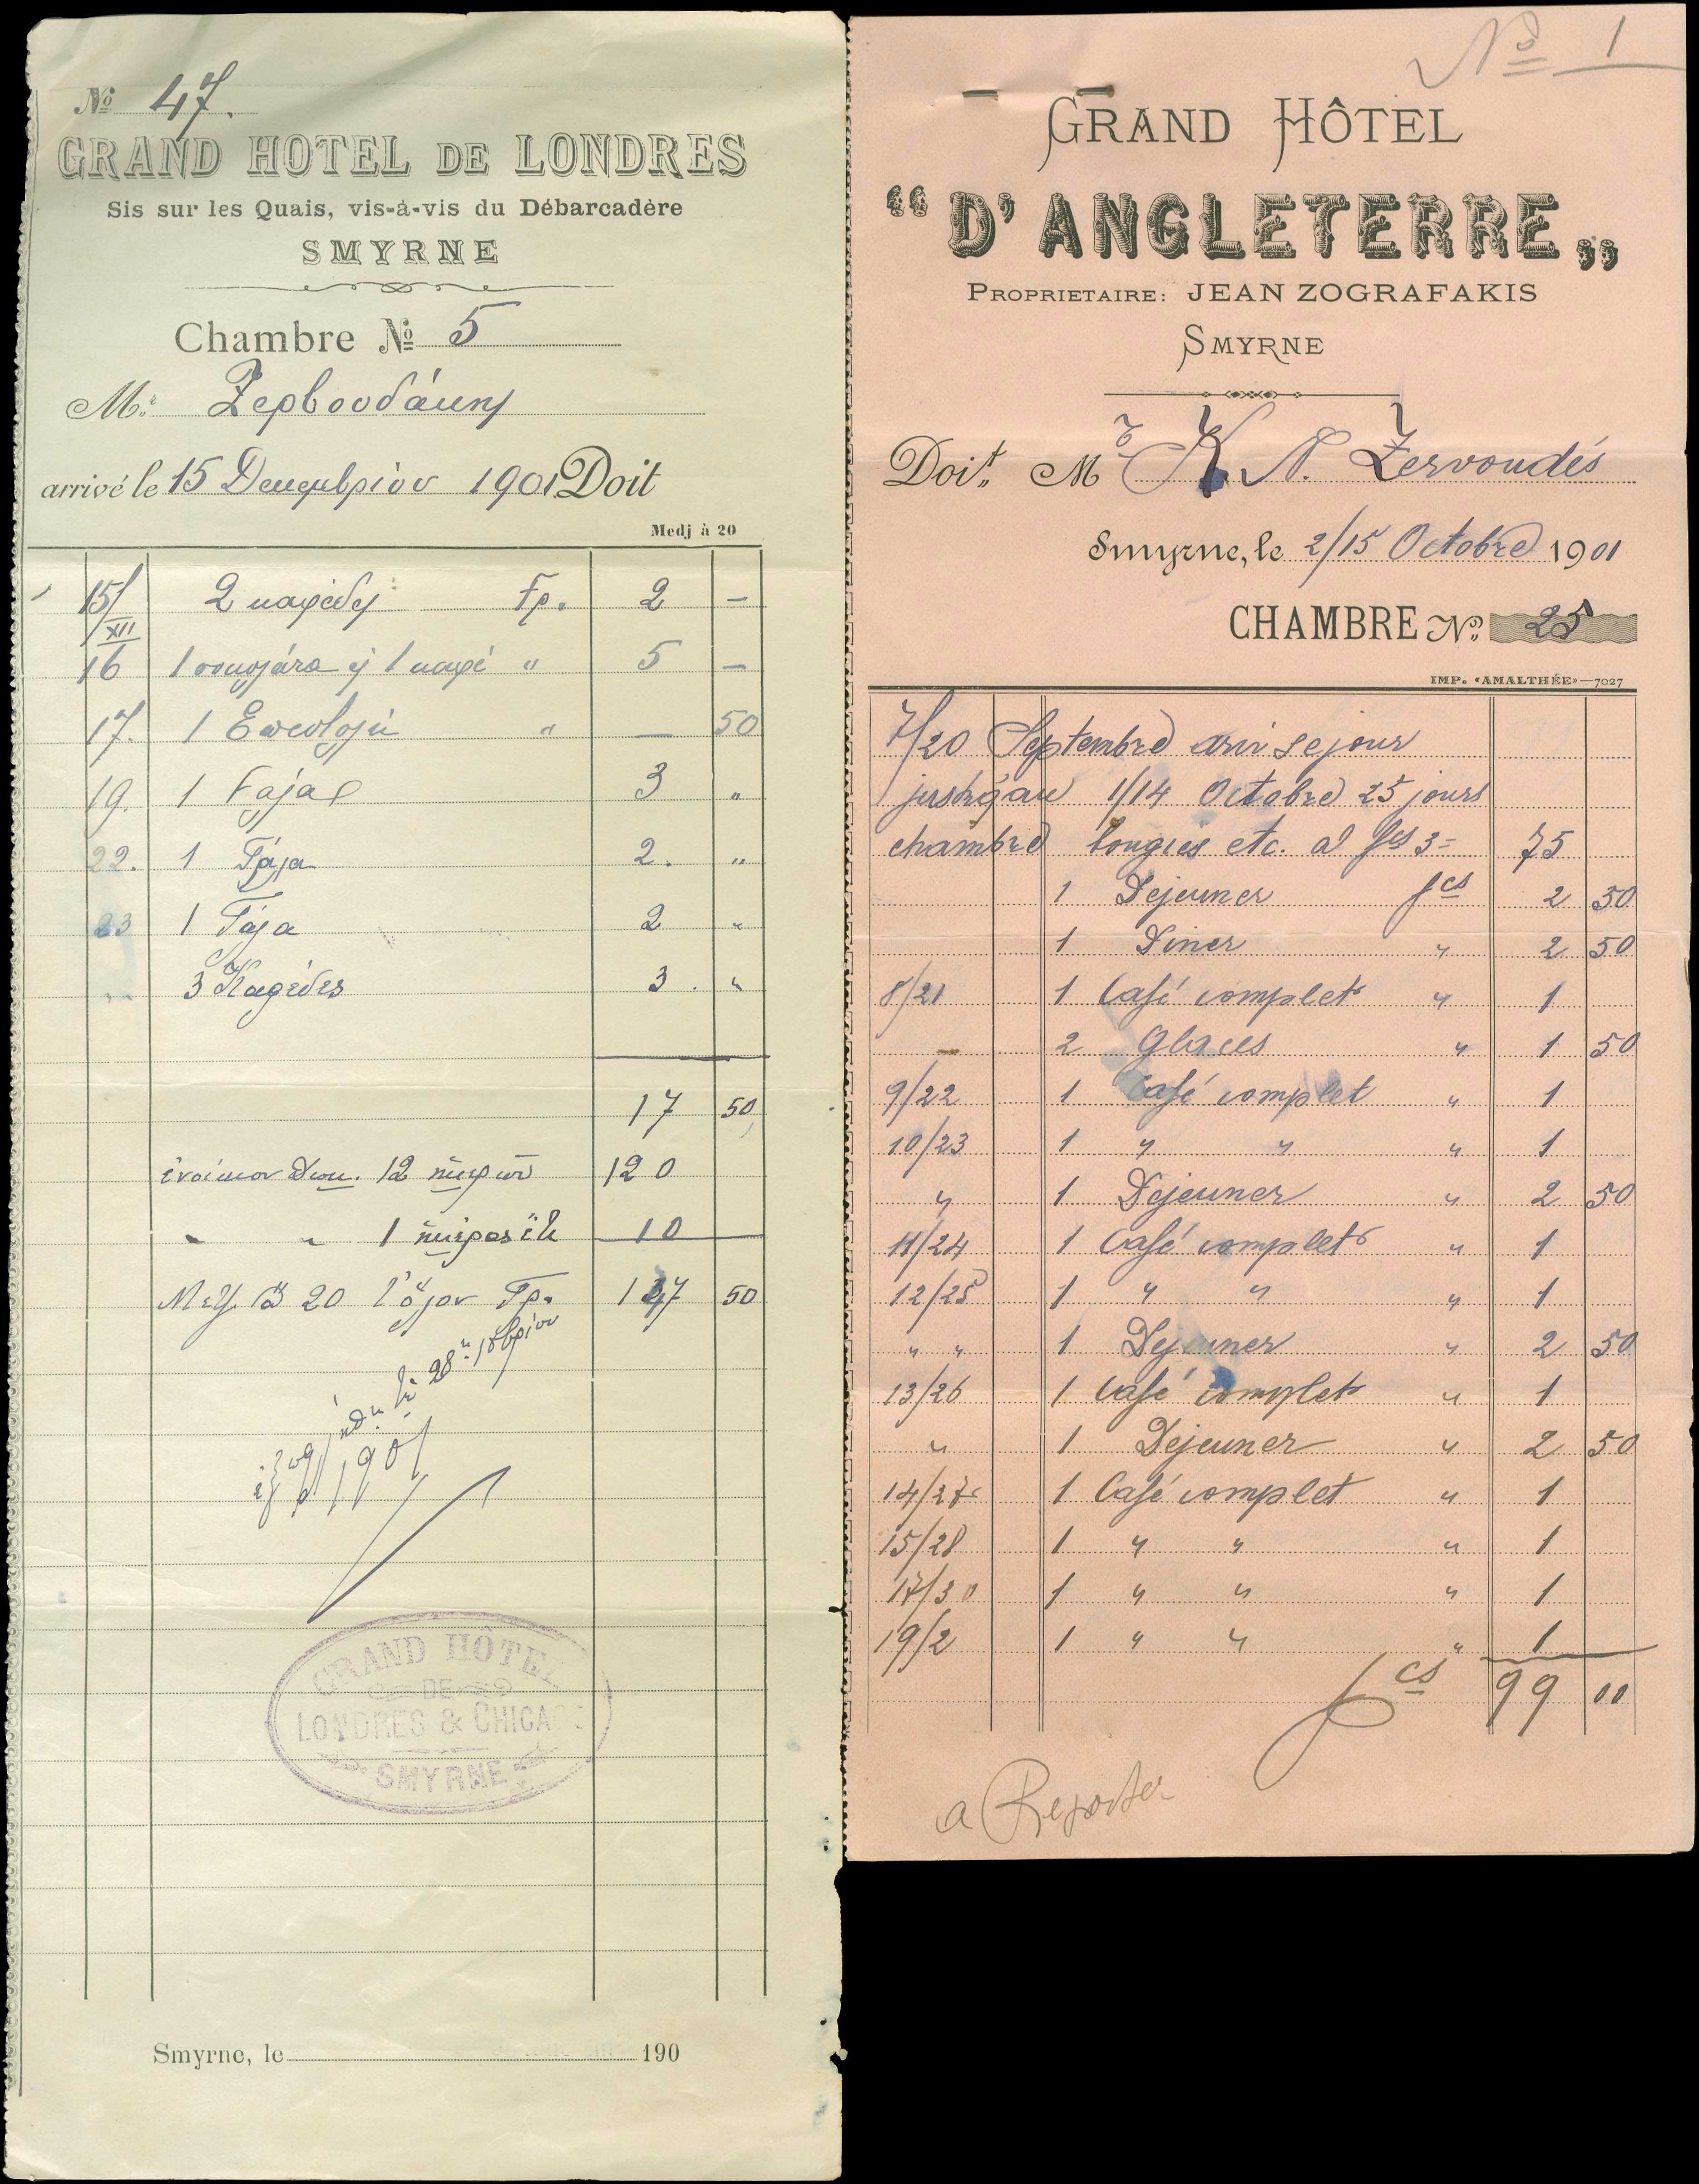 № 47.
GRAND HOTEL DE LONDRES
Sis sur les Quais, vis-à-vis du Débarcadère
SMYRNE
Chambre № 5
Mr. Ζερβουδάκης
arrivé le 15 Δεκεμβρίου 1901 Doit
Medj à 20
15/XII 2 καφέδες Γρ. 2 —
16 1 καφέ " 5 —
17. 1 " — 50
19. 1 Γάλα 3 "
22. 1 Γάλα 2. "
23 1 Γάλα 2 "
" 3 Καφέδες 3. "
17 50
ἐνοίκιον δωμ. 12 ἡμερῶν 120
" " 1 10
20 Γρ. 147 50
28
1901
GRAND HÔTEL
DE
LONDRES & CHICAGO
SMYRNE
Smyrne, le 190
№ 1
GRAND HÔTEL
“D’ANGLETERRE„
PROPRIETAIRE: JEAN ZOGRAFAKIS
SMYRNE
Doit Mr K. N. Zervoudés
Smyrne, le 2/15 Octobre 1901
CHAMBRE No. 25
IMP. «AMALTHÉE»—7027
7/20 Septembre sejour
1/14 Octobre 25 jours
chambre bougies etc. a fcs 3= 75
1 Dejeuner fcs 2 50
1 Diner " 2 50
8/21 1 Café complet " 1
— 2 Glaces " 1 50
9/22 1 Café complet " 1
10/23 1 " " " 1
" 1 Dejeuner " 2 50
11/24 1 Café complet " 1
12/25 1 " " " 1
" " 1 Dejeuner " 2 50
13/26 1 Café complet " 1
" 1 Dejeuner " 2 50
14/27 1 Café complet " 1
15/28 1 " " " 1
17/30 1 " " " 1
19/2 1 " " " 1
fcs 99 00
a Reporter